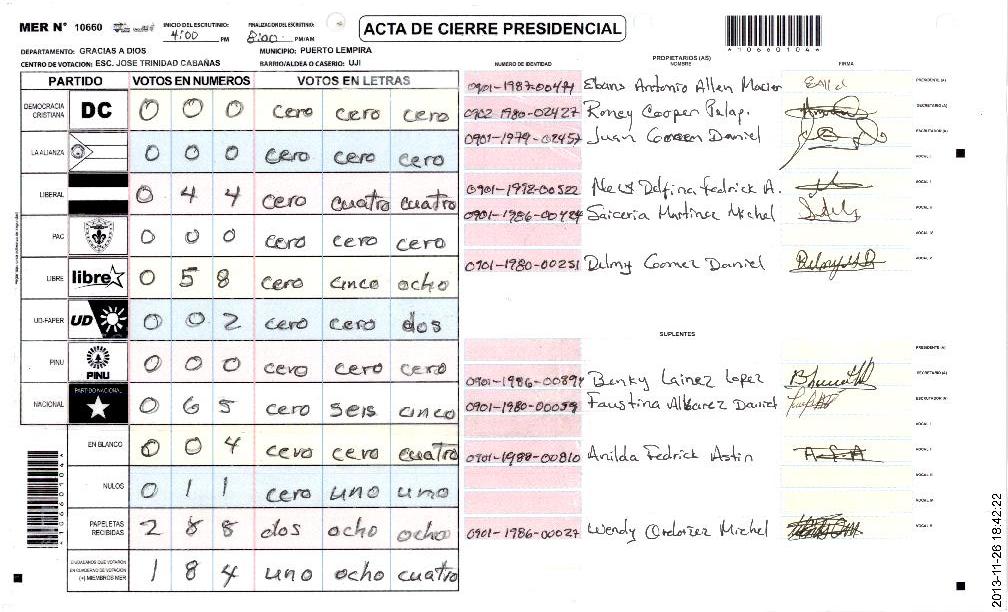 MER N° 10660
INICIO DEL ESCRUTINIO: 4:00 PM
FINALIZACION DEL ESCRUTINIO: 8:00 PM/AM
ACTA DE CIERRE PRESIDENCIAL
DEPARTAMENTO: GRACIAS A DIOS MUNICIPIO: PUERTO LEMPIRA
CENTRO DE VOTACION: ESC. JOSE TRINIDAD CABAÑAS BARRIO/ALDEA O CASERIO: UJI
PARTIDO VOTOS EN NUMEROS VOTOS EN LETRAS
DEMOCRACIA CRISTIANA DC 0 0 0 cero cero cero
LA ALIANZA 0 0 0 cero cero cero
LIBERAL 0 4 4 cero cuatro cuatro
PAC 0 0 0 cero cero cero
LIBRE libre 0 5 8 cero cinco ocho
UD-FAPER UD 0 0 2 cero cero dos
PINU PINU 0 0 0 cero cero cero
NACIONAL PARTIDO NACIONAL 0 6 5 cero seis cinco
EN BLANCO 0 0 4 cero cero cuatro
NULOS 0 1 1 cero uno uno
PAPELETAS RECIBIDAS 2 8 8 dos ocho ocho
CIUDADANOS QUE VOTARON EN CUADERNO DE VOTACION (+) MIEMBROS MER 1 8 4 uno ocho cuatro
1 0 6 6 0 1 0 4
PROPIETARIOS (AS)
NUMERO DE IDENTIDAD NOMBRE FIRMA
0901-1987-00471 Ebans Antonio Allen PRESIDENTE (A)
0902 1980-02427 Roney Cooper SECRETARIO (A)
0901-1979-02457 Juan Daniel ESCRUTADOR (A)
VOCAL I
0901-1972-00522 Delfina Fedrick A. VOCAL II
0901-1986-00424 Saiceria Martinez Michel VOCAL III
VOCAL IV
0901-1980-00251 Delmy Gomez Daniel VOCAL V
SUPLENTES
PRESIDENTE (A)
0901-1986-00897 Benky Lainez Lopez SECRETARIO (A)
0901-1980-00059 Faustina Daniel ESCRUTADOR (A)
VOCAL I
0901-1988-00810 Anilda Fedrick Astin
VOCAL III
VOCAL IV
0901-1986-00027 Wendy Ordoñez Michel VOCAL V
2013-11-26 18:42:22